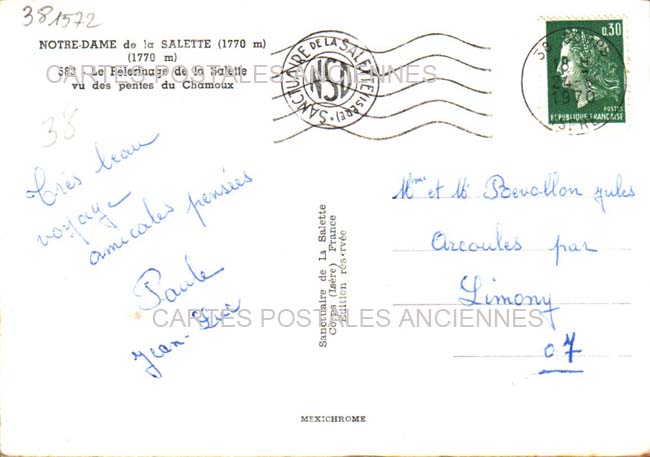 381572
NOTRE-DAME de la SALETTE (1770 m)
(1770 m)
583 - Le Pèlerinage de la Salette
vu des pentes du Chamoux
CARTES POSTALES ANCIENNES
SANCTUAIRE DE LA SALETTE (ISÈRE)
NSD
38
18
0,30
POSTES
REPUBLIQUE FRANÇAISE
38
Très beau
voyage
amicales pensées
Paule
Jean-Luc
Sanctuaire de la Salette
Corps (Isère) France
Edition réservée
Mme et Mr Revollon Jules
Arcoules par
Limony
07
CARTES POSTALES ANCIENNES
MEXICHROME